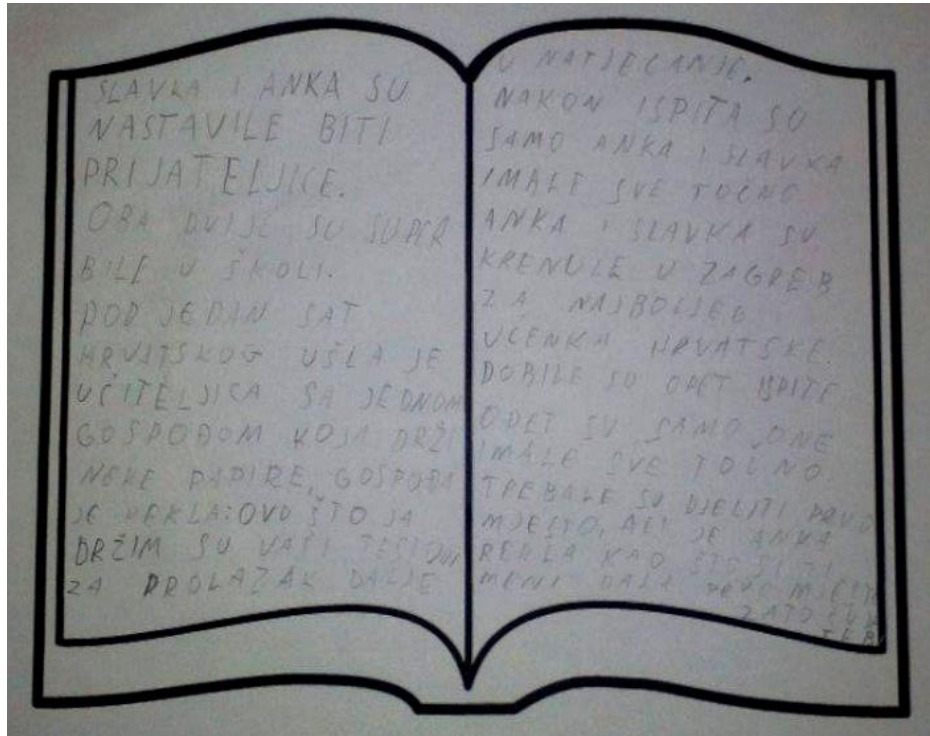 SLAVKA I ANKA SU
NASTAVILE BITI
PRIJATELJICE.
OBA DVIJE SU SUPER
BILE U ŠKOLI.
POD JEDAN SAT
HRVATSKOG UŠLA JE
UČITELJICA SA JEDNOM
GOSPOĐOM KOJA DRŽI
NEKE PAPIRE, GOSPOĐA
JE REKLA: OVO ŠTO JA
DRŽIM SU VAŠI TESTOVI
ZA PROLAZAK DALJE
U NATJECANJE.
NAKON ISPITA SO
SAMO ANKA I SLAVKA
IMALE SVE TOČNO
ANKA I SLAVKA SU
KRENULE U ZAGREB
ZA NAJBOLJEG
UČENKA HRVATSKE.
DOBILE SU OPET ISPITE
OPET SU SAMO ONE
IMALE SVE TOČNO.
TREBALE SU DJELITI PRVO
MJESTO, ALI JE ANKA
REKLA KAO ŠTO SI TI
MENI DALA PRVO MJESTO
ZATO ĆU JA
TEBI